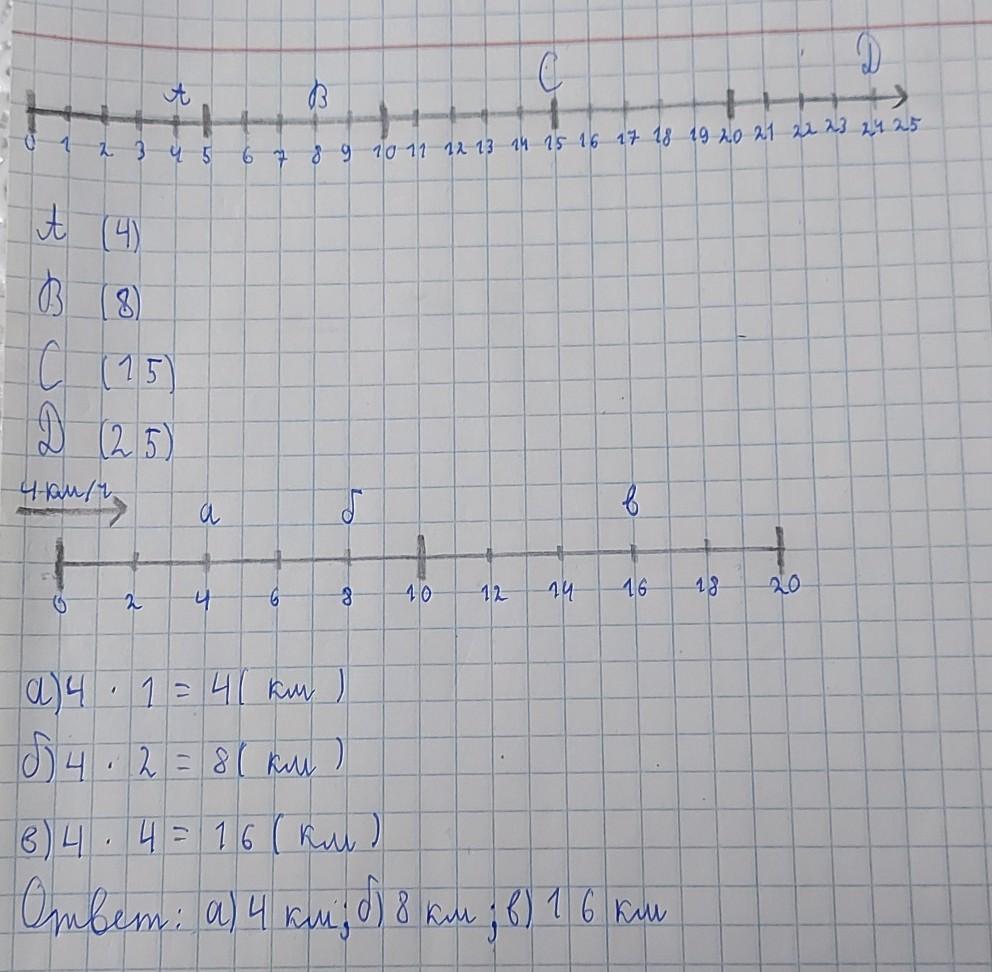 A B C D
0 1 2 3 4 5 6 7 8 9 10 11 12 13 14 15 16 17 18 19 20 21 22 23 24 25
A (4)
B (8)
C (15)
D (25)
4 км/ч
а б в
0 2 4 6 8 10 12 14 16 18 20
а) 4 · 1 = 4 (км)
б) 4 · 2 = 8 (км)
в) 4 · 4 = 16 (км)
Ответ: а) 4 км; б) 8 км; в) 16 км